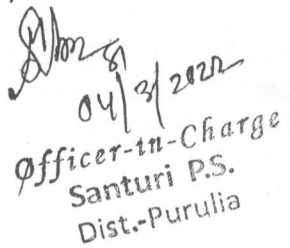 04/3/2022
Officer-in-Charge
Santuri P.S.
Dist.-Purulia